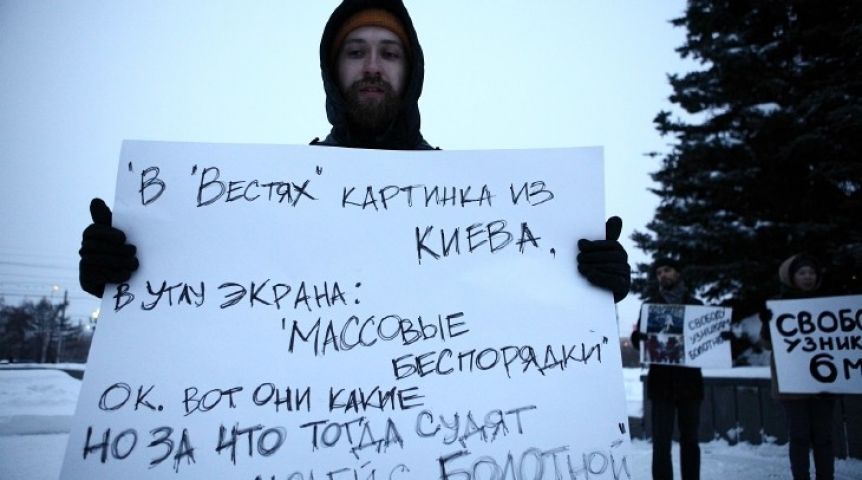 "В "ВЕСТЯХ" КАРТИНКА ИЗ
КИЕВА.
В УГЛУ ЭКРАНА:
"МАССОВЫЕ
БЕСПОРЯДКИ"
ОК. ВОТ ОНИ КАКИЕ
НО ЗА ЧТО ТОГДА СУДЯТ
БОЛОТНОЙ"
СВОБОДУ
УЗНИКАМ
БОЛОТНОЙ
СВОБО
УЗНИК
6 М